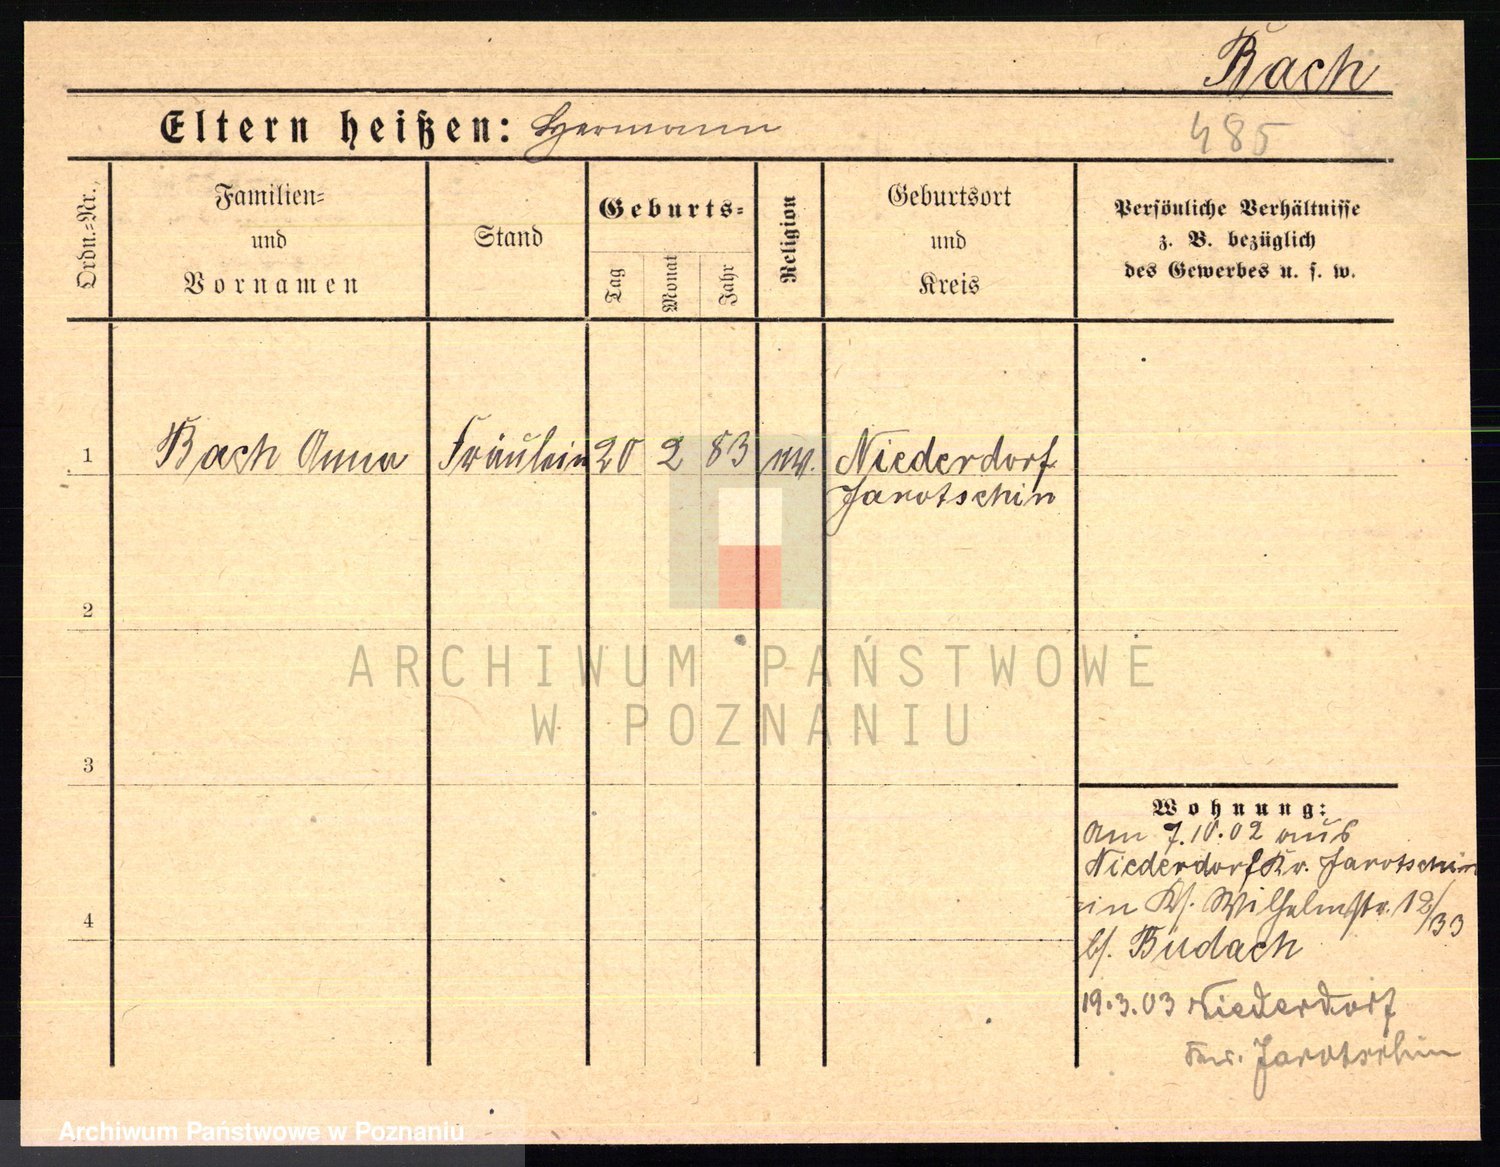 Bach
Eltern heißen: Hermann
485
Ordn.-Nr.
Familien-
und
Vornamen
Stand
Geburts-
Tag
Monat
Jahr
Religion
Geburtsort
und
Kreis
Persönliche Verhältnisse
z. B. bezüglich
des Gewerbes u. s. w.
1 Bach Anna Fräulein 20 2 83 Niederdorf
Jarotschin
2
ARCHIWUM PAŃSTWOWE
W POZNANIU
3
Wohnung:
Am 7.10.02 aus
Niederdorf Kr. Jarotschin
in Wilhelmstr. 12/33
4
b/. Budach
19.3.03 Niederdorf
Jarotschin
Archiwum Państwowe w Poznaniu